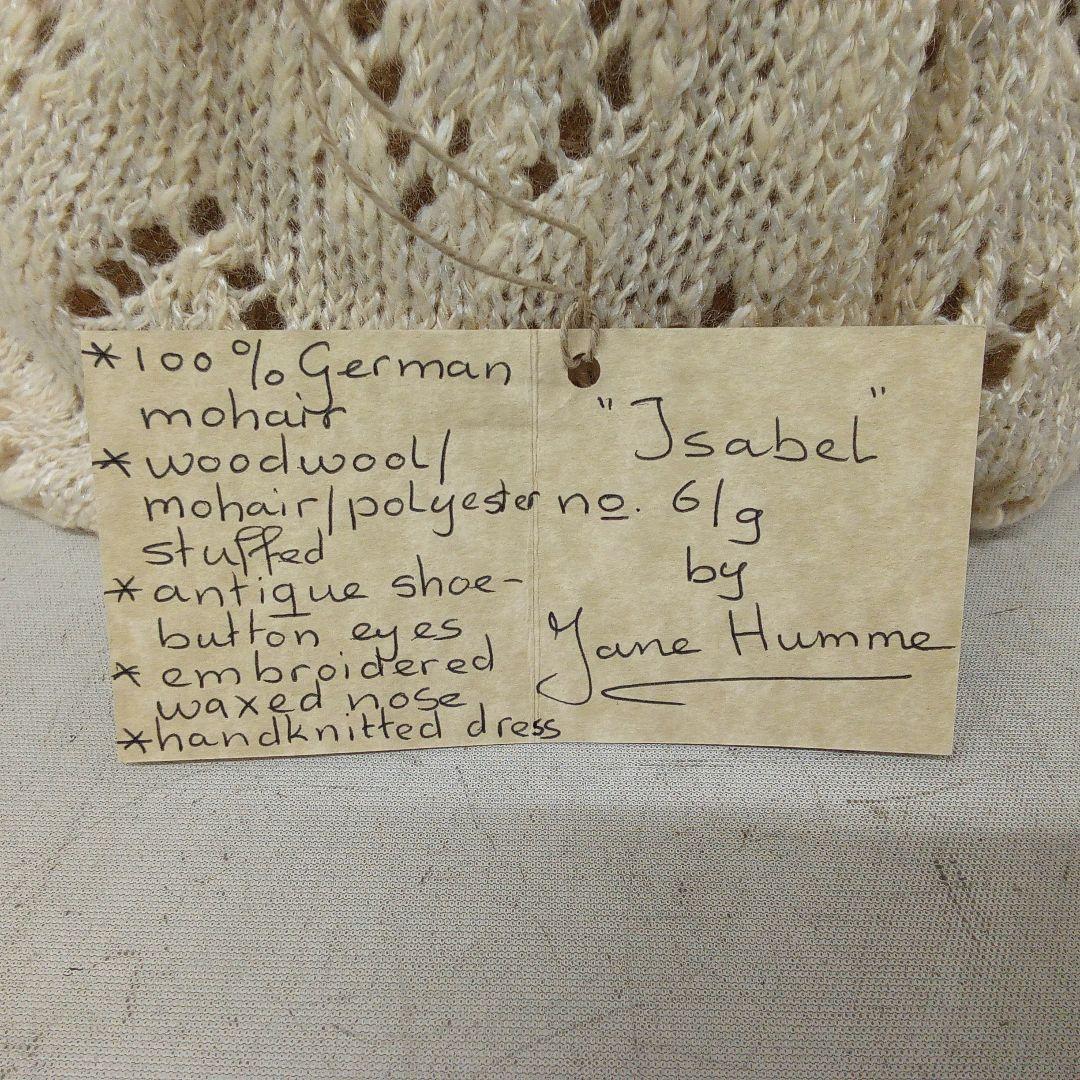 *100% German
mohair
*woodwool/
mohair/polyester
stuffed
*antique shoe-
button eyes
*embroidered
waxed nose
*handknitted dress
"Isabel"
no. 6/g
by
Jane Humme